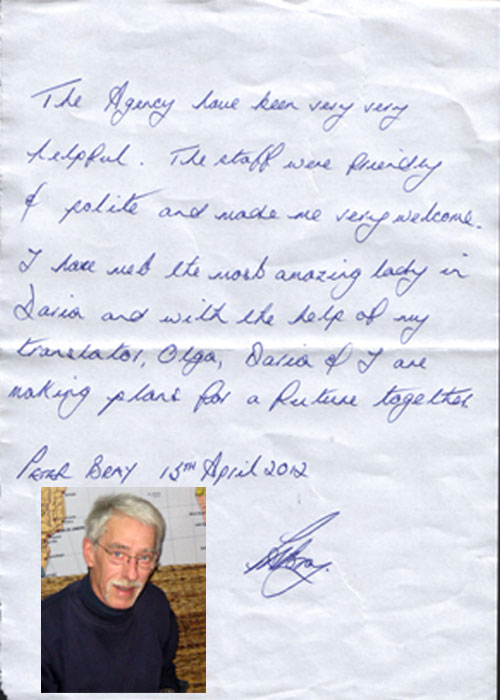 The Agency have been very very
helpful. The staff were friendly
& polite and made me very welcome.
I have met the most amazing lady in
Daria and with the help of my
translator, Olga, Daria & I are
making plans for a future together
PETER BRAY 15TH April 2012